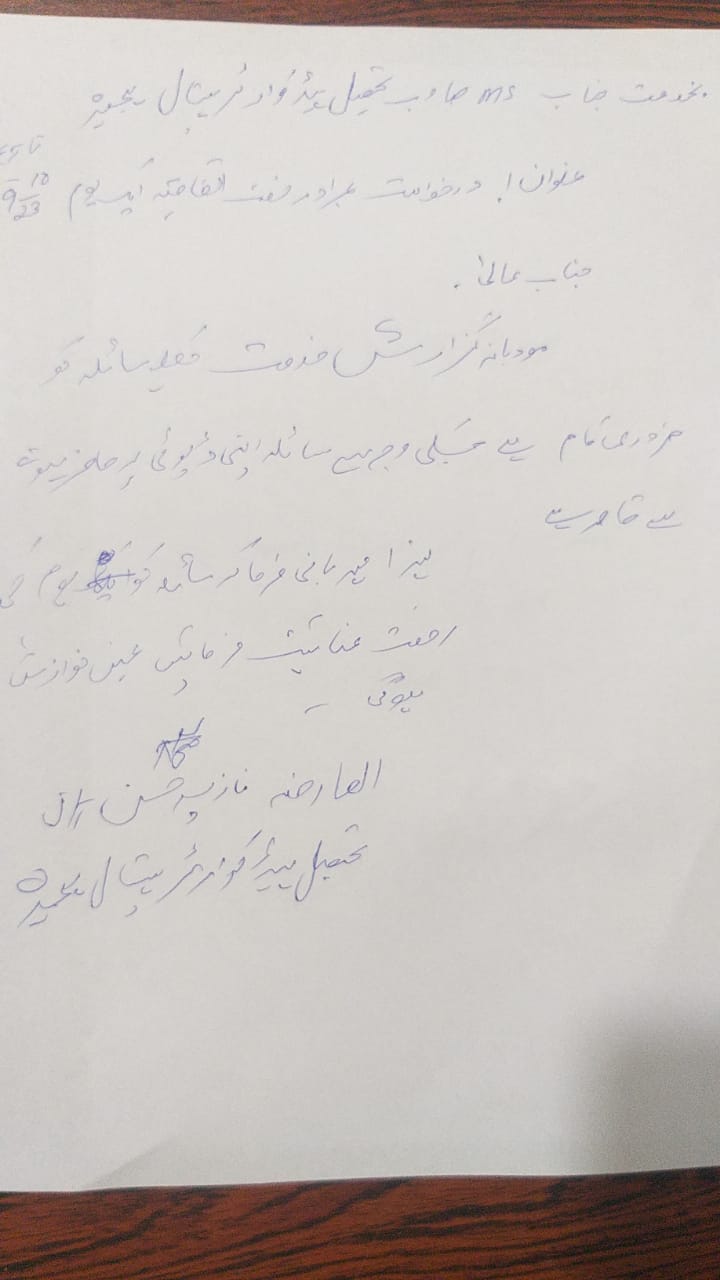 بخدمت جناب MS صاحب تحصیل ہیڈ کوارٹر ہسپتال بھیرہ
تاریخ
عنوان! درخواست بمراد رخصت اتفاقیہ ایک یوم 18 9 23
جناب عالیٰ۔
مودبانہ گزارش خدمت کہ سائلہ کو
ضروری کام ہے جسکی وجہ سے سائلہ اپنی ڈیوٹی پر حاضر ہونے
سے قاصر ہے
لہذا مہربانی فرما کر سائلہ کو ایک یوم کی
رخصت عنایت فرمائیں عین نوازش
ہوگی ۔
العارضہ نازیہ حسن
تحصیل ہیڈ کوارٹر ہسپتال بھیرہ